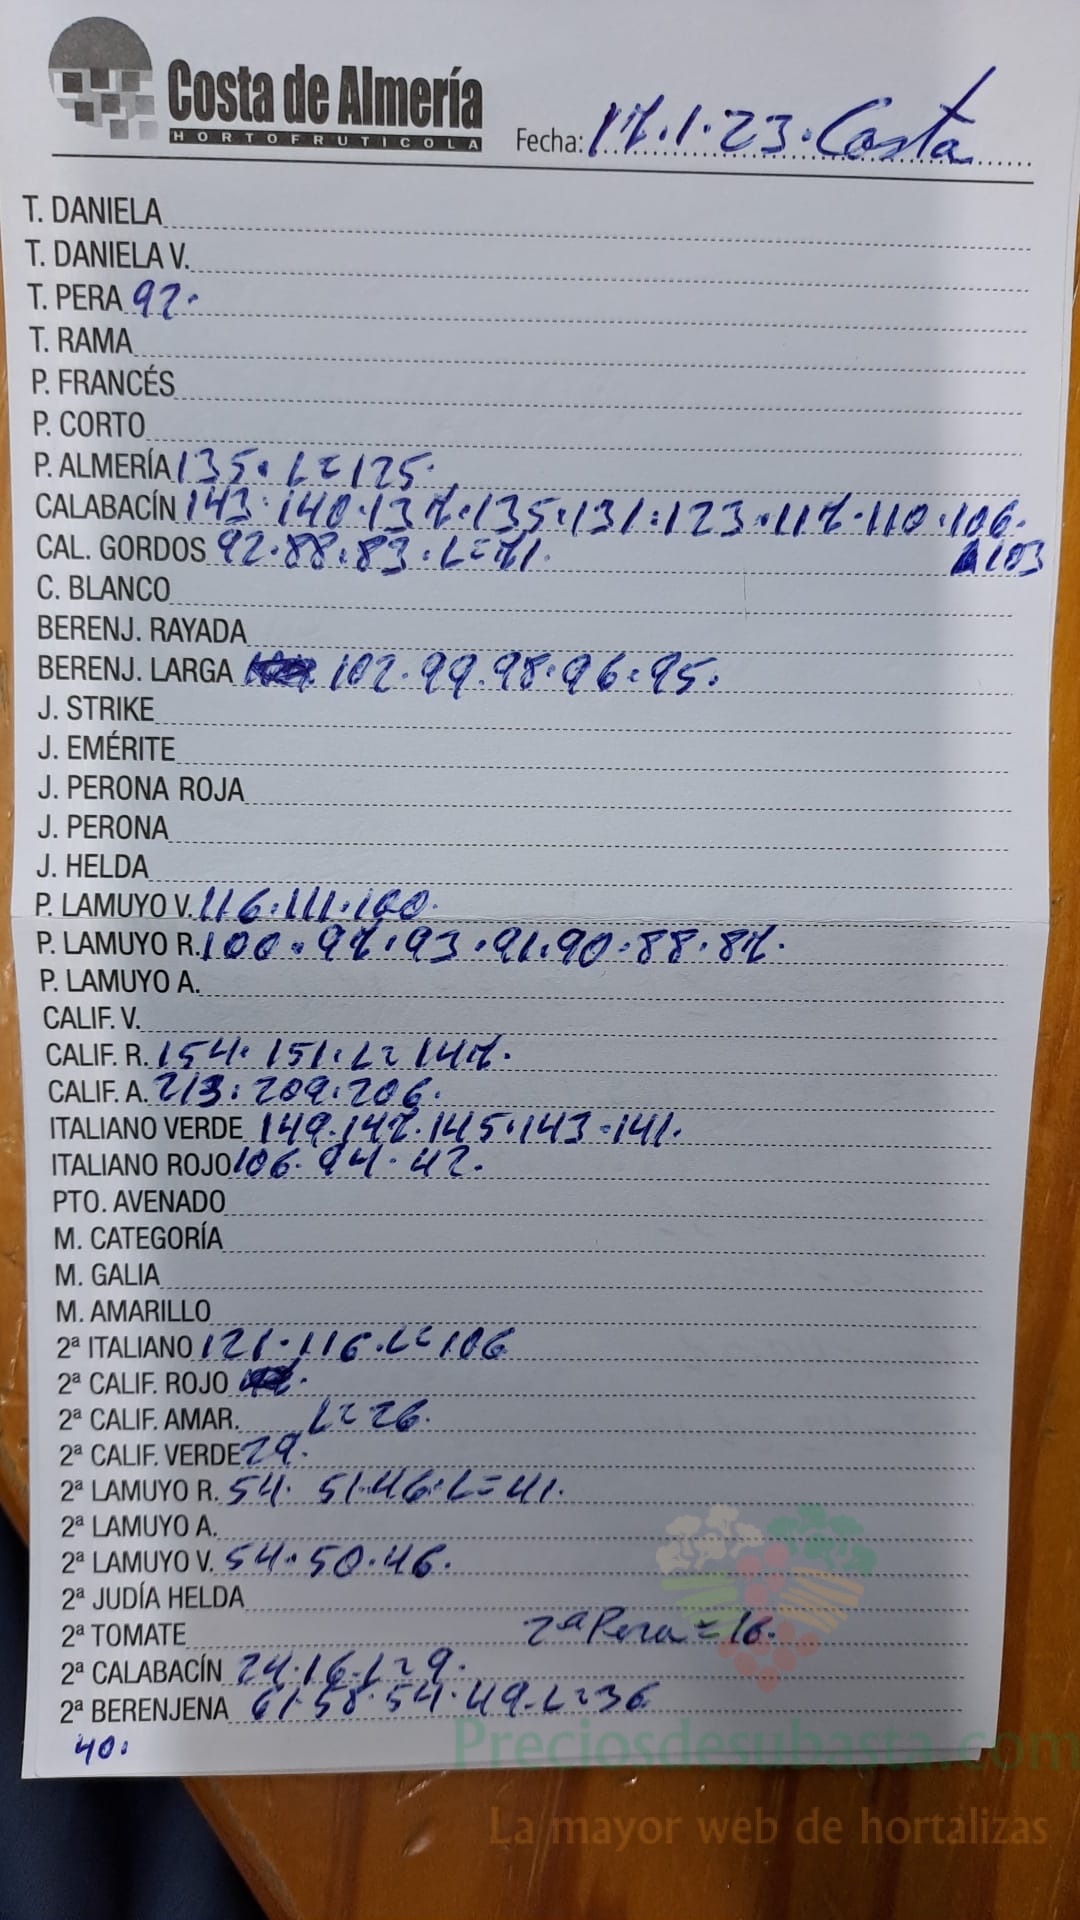 Costa de Almería
HORTOFRUTICOLA
Fecha: 17.1.23. Costa
T. DANIELA
T. DANIELA V.
T. PERA 92.
T. RAMA
P. FRANCÉS
P. CORTO
P. ALMERÍA 135. L=125.
CALABACÍN 143. 140. 137. 135. 131. 123. 117. 110. 106.
103
CAL. GORDOS 92. 88. 83. L=71.
C. BLANCO
BERENJ. RAYADA
BERENJ. LARGA 102. 99. 98. 96. 95.
J. STRIKE
J. EMÉRITE
J. PERONA ROJA
J. PERONA
J. HELDA
P. LAMUYO V. 116. 111. 100.
P. LAMUYO R. 100. 97. 93. 91. 90. 88. 87.
P. LAMUYO A.
CALIF. V.
CALIF. R. 154. 151. L=147.
CALIF. A. 213. 209. 206.
ITALIANO VERDE 149. 147. 145. 143. 141.
ITALIANO ROJO 106. 94. 42.
PTO. AVENADO
M. CATEGORÍA
M. GALIA
M. AMARILLO
2ª ITALIANO 121. 116. L=106
2ª CALIF. ROJO
2ª CALIF. AMAR. L=26.
2ª CALIF. VERDE 29.
2ª LAMUYO R. 54. 51. 46. L=41.
2ª LAMUYO A.
2ª LAMUYO V. 54. 50. 46.
2ª JUDÍA HELDA
2ª TOMATE 2ª Pera=16.
2ª CALABACÍN 24. 16. L=9.
2ª BERENJENA 61. 58. 54. 49. L=36
40.
Preciosdesubasta.com
La mayor web de hortalizas